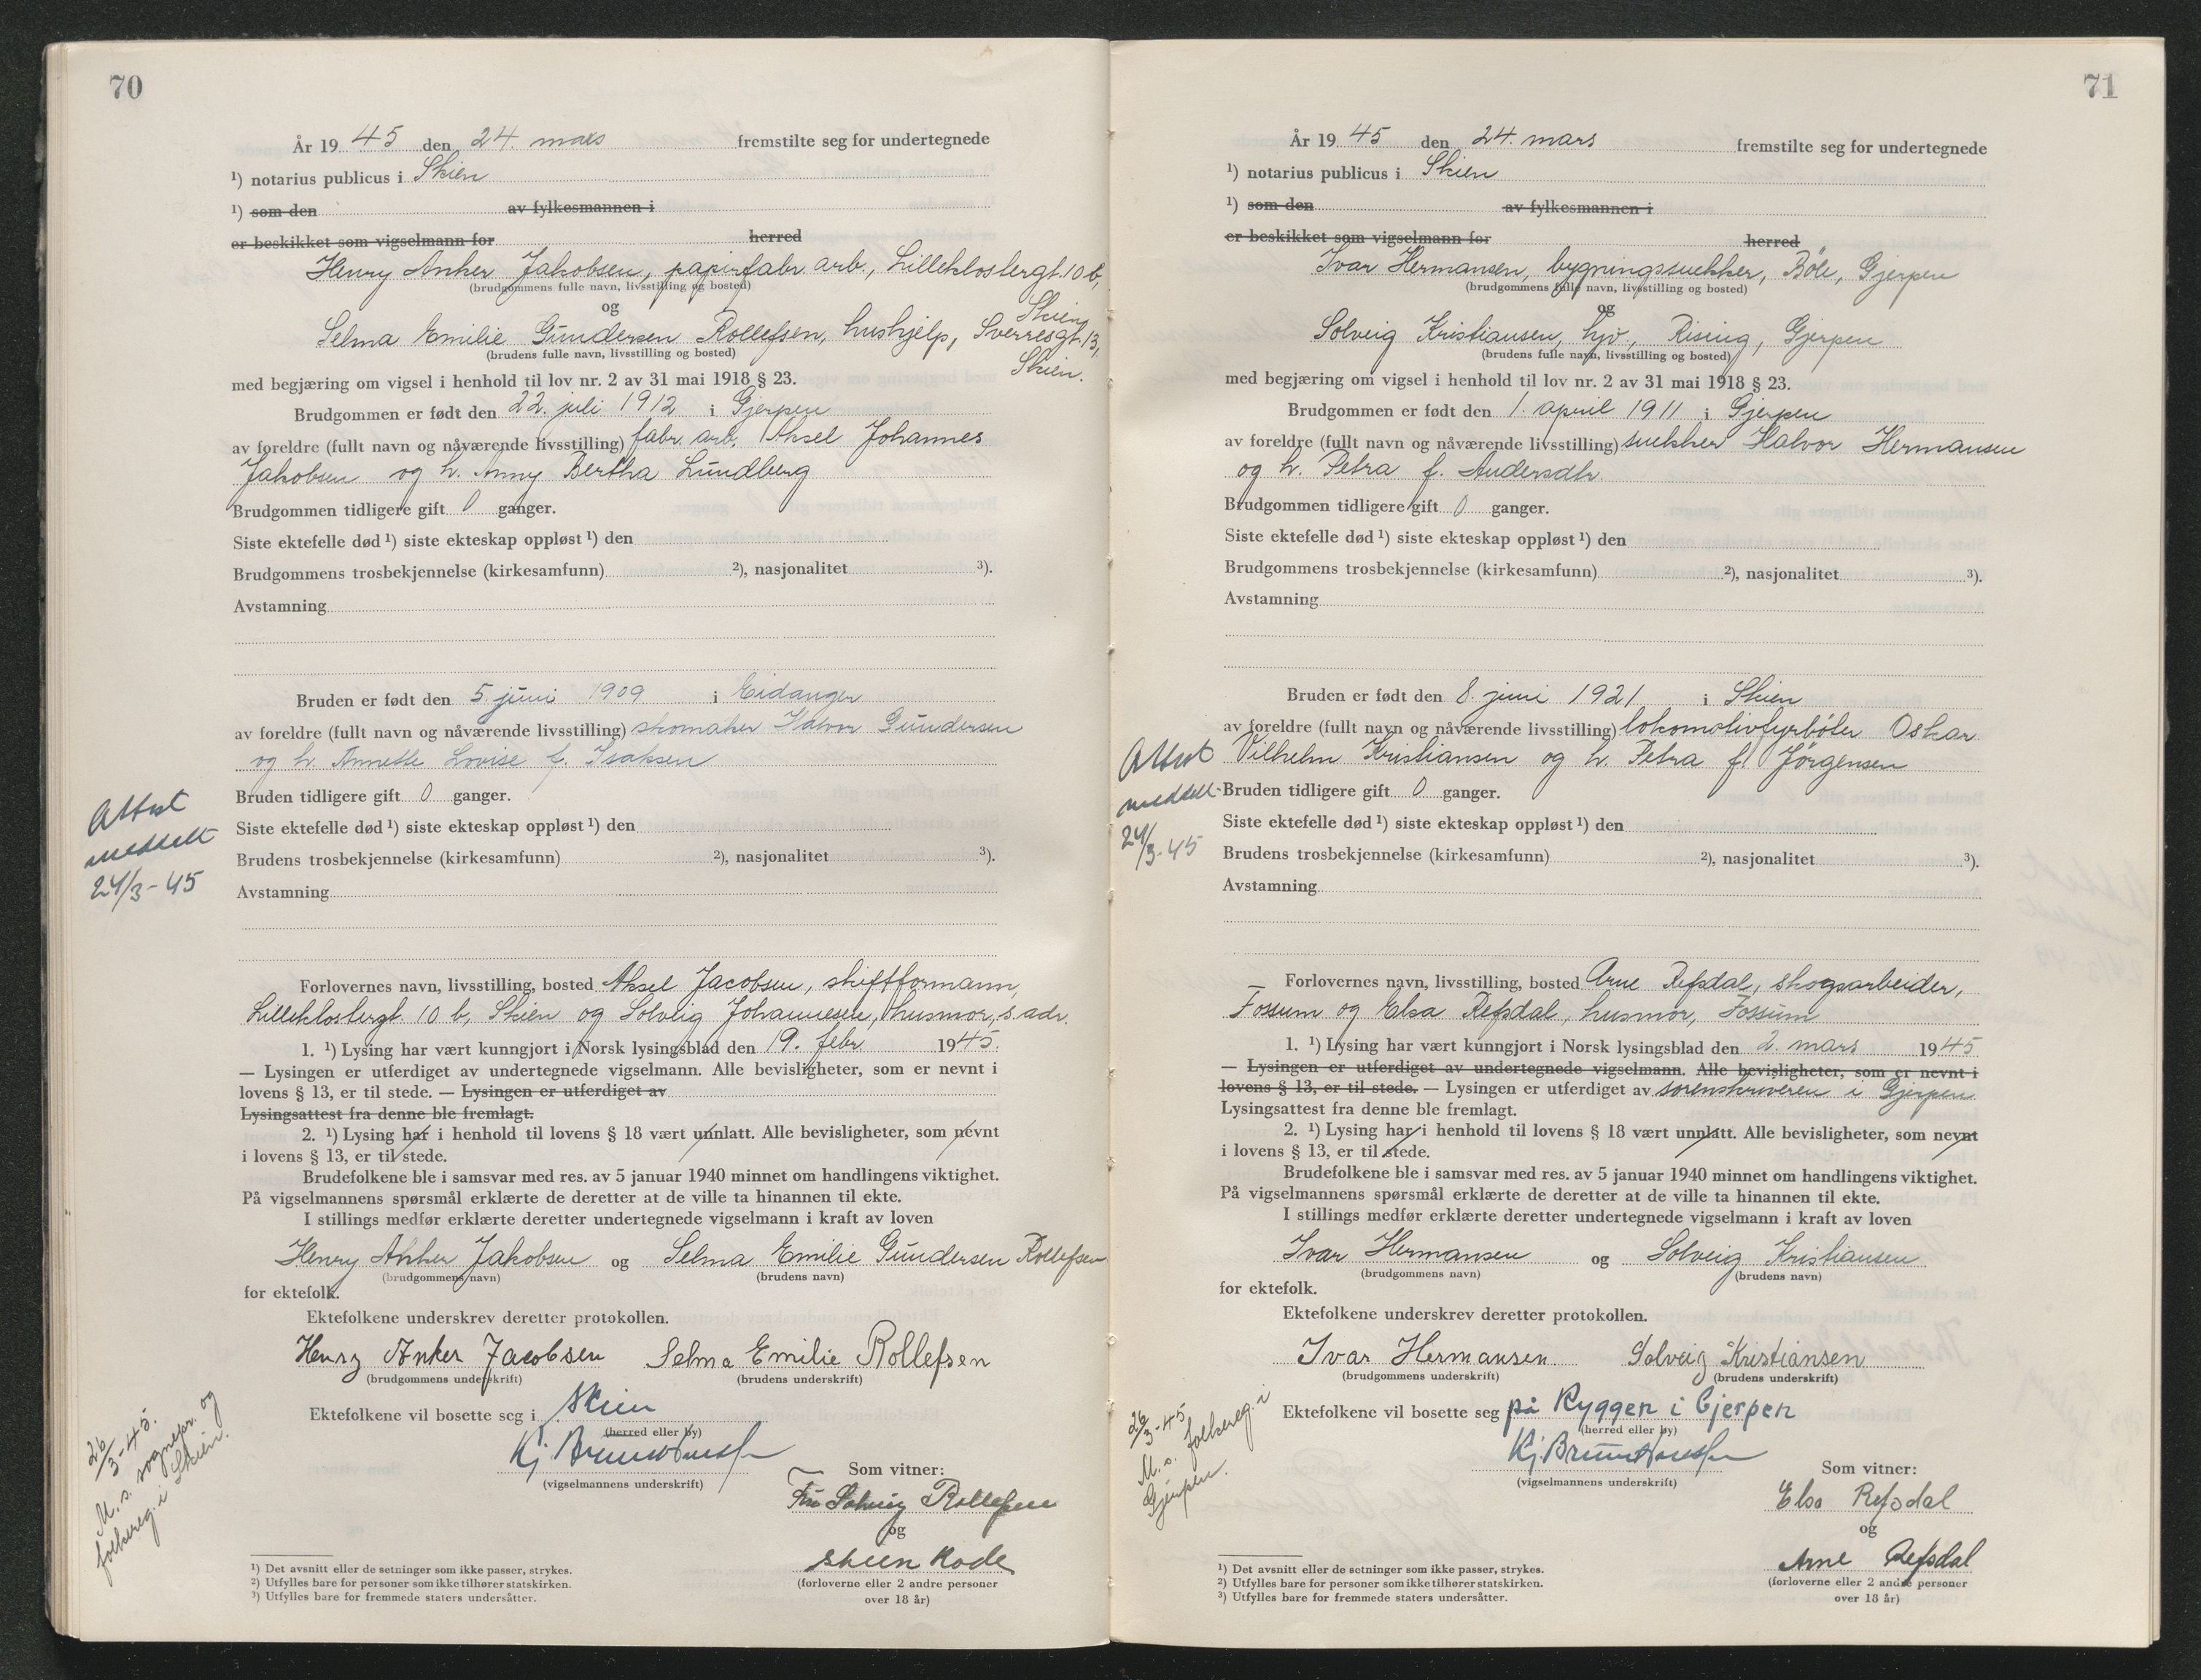 70
År 1945 den 24. mars fremstilte seg for undertegnede
¹) notarius publicus i Skien
¹) som den av fylkesmannen i
er beskikket som vigselmann for herred
Henry Anker Jakobsen, papirfabr. arb., Lilleklostergt. 10 b,
(brudgommens fulle navn, livsstilling og bosted)
Skien
og
Selma Emilie Gundersen Rollefsen, hushjelp, Sverresgt. 13,
(brudens fulle navn, livsstilling og bosted)
Skien.
med begjæring om vigsel i henhold til lov nr. 2 av 31 mai 1918 § 23.
Brudgommen er født den 22. juli 1912 i Gjerpen
av foreldre (fullt navn og nåværende livsstilling) fabr. arb. Aksel Johannes
Jakobsen og h. Anny Bertha Lundberg
Brudgommen tidligere gift 0 ganger.
Siste ektefelle død ¹) siste ekteskap oppløst ¹) den
Brudgommens trosbekjennelse (kirkesamfunn) ²), nasjonalitet ³).
Avstamning
Bruden er født den 5. juni 1909 i Eidanger
av foreldre (fullt navn og nåværende livsstilling) skomaker Halvor Gundersen
og h. Annette Lovise f. Isaksen
Bruden tidligere gift 0 ganger.
Attest
meddelt
24/3-45
Siste ektefelle død ¹) siste ekteskap oppløst ¹) den
Brudens trosbekjennelse (kirkesamfunn) ²), nasjonalitet ³).
Avstamning
Forlovernes navn, livsstilling, bosted Aksel Jacobsen, skiftformann,
Lilleklostergt. 10 b, Skien og Solveig Johannesen, husmor, s. adr.
1. ¹) Lysing har vært kunngjort i Norsk lysingsblad den 19. febr. 1945.
— Lysingen er utferdiget av undertegnede vigselmann. Alle bevisligheter, som er nevnt i
lovens § 13, er til stede. — Lysingen er utferdiget av
Lysingsattest fra denne ble fremlagt.
2. ¹) Lysing har i henhold til lovens § 18 vært unnlatt. Alle bevisligheter, som nevnt
i lovens § 13, er til stede.
Brudefolkene ble i samsvar med res. av 5 januar 1940 minnet om handlingens viktighet.
På vigselmannens spørsmål erklærte de deretter at de ville ta hinannen til ekte.
I stillings medfør erklærte deretter undertegnede vigselmann i kraft av loven
Henry Anker Jakobsen og Selma Emilie Gundersen Rollefsen
(brudgommens navn) (brudens navn)
for ektefolk.
Ektefolkene underskrev deretter protokollen.
Henry Anker Jacobsen Selma Emilie Rollefsen
(brudgommens underskrift) (brudens underskrift)
Ektefolkene vil bosette seg i Skien
(herred eller by)
Kj.
(vigselmannens underskrift)
Som vitner:
Solveig Rollefsen
og
(forloverne eller 2 andre personer
over 18 år)
26/3-45.
M. s. sognepr. og
folkereg. i Skien.
¹) Det avsnitt eller de setninger som ikke passer, strykes.
²) Utfylles bare for personer som ikke tilhører statskirken.
³) Utfylles bare for fremmede staters undersåtter.
71
År 1945 den 24. mars fremstilte seg for undertegnede
¹) notarius publicus i Skien
¹) som den av fylkesmannen i
er beskikket som vigselmann for herred
Ivar Hermansen, bygningssnekker, Böle, Gjerpen
(brudgommens fulle navn, livsstilling og bosted)
og
Solveig Kristiansen, hjv., Rising, Gjerpen
(brudens fulle navn, livsstilling og bosted)
med begjæring om vigsel i henhold til lov nr. 2 av 31 mai 1918 § 23.
Brudgommen er født den 1. april 1911 i Gjerpen
av foreldre (fullt navn og nåværende livsstilling) snekker Halvor Hermansen
og h. Petra f. Andersdtr.
Brudgommen tidligere gift 0 ganger.
Siste ektefelle død ¹) siste ekteskap oppløst ¹) den
Brudgommens trosbekjennelse (kirkesamfunn) ²), nasjonalitet ³).
Avstamning
Bruden er født den 8. juni 1921 i Skien
av foreldre (fullt navn og nåværende livsstilling) lokomotivfyrbøter Oskar
Vilhelm Kristiansen og h. Petra f. Jörgensen
Attest
meddelt
24/3-45
Bruden tidligere gift 0 ganger.
Siste ektefelle død ¹) siste ekteskap oppløst ¹) den
Brudens trosbekjennelse (kirkesamfunn) ²), nasjonalitet ³).
Avstamning
Forlovernes navn, livsstilling, bosted Arne Refsdal, skogsarbeider,
Fossum og Elsa Refsdal, husmor, Fossum
1. ¹) Lysing har vært kunngjort i Norsk lysingsblad den 2. mars 1945
— Lysingen er utferdiget av undertegnede vigselmann. Alle bevisligheter, som er nevnt i
lovens § 13, er til stede. — Lysingen er utferdiget av sorenskriveren i Gjerpen
Lysingsattest fra denne ble fremlagt.
2. ¹) Lysing har i henhold til lovens § 18 vært unnlatt. Alle bevisligheter, som nevnt
i lovens § 13, er til stede.
Brudefolkene ble i samsvar med res. av 5 januar 1940 minnet om handlingens viktighet.
På vigselmannens spørsmål erklærte de deretter at de ville ta hinannen til ekte.
I stillings medfør erklærte deretter undertegnede vigselmann i kraft av loven
Ivar Hermansen og Solveig Kristiansen
(brudgommens navn) (brudens navn)
for ektefolk.
Ektefolkene underskrev deretter protokollen.
Ivar Hermansen Solveig Kristiansen
(brudgommens underskrift) (brudens underskrift)
Ektefolkene vil bosette seg på Ryggen i Gjerpen
(herred eller by)
Kj.
(vigselmannens underskrift)
Som vitner:
Elsa Refsdal
og
Arne Refsdal
(forloverne eller 2 andre personer
over 18 år)
26/3-45
M. s. folkereg. i
Gjerpen.
¹) Det avsnitt eller de setninger som ikke passer, strykes.
²) Utfylles bare for personer som ikke tilhører statskirken.
³) Utfylles bare for fremmede staters undersåtter.